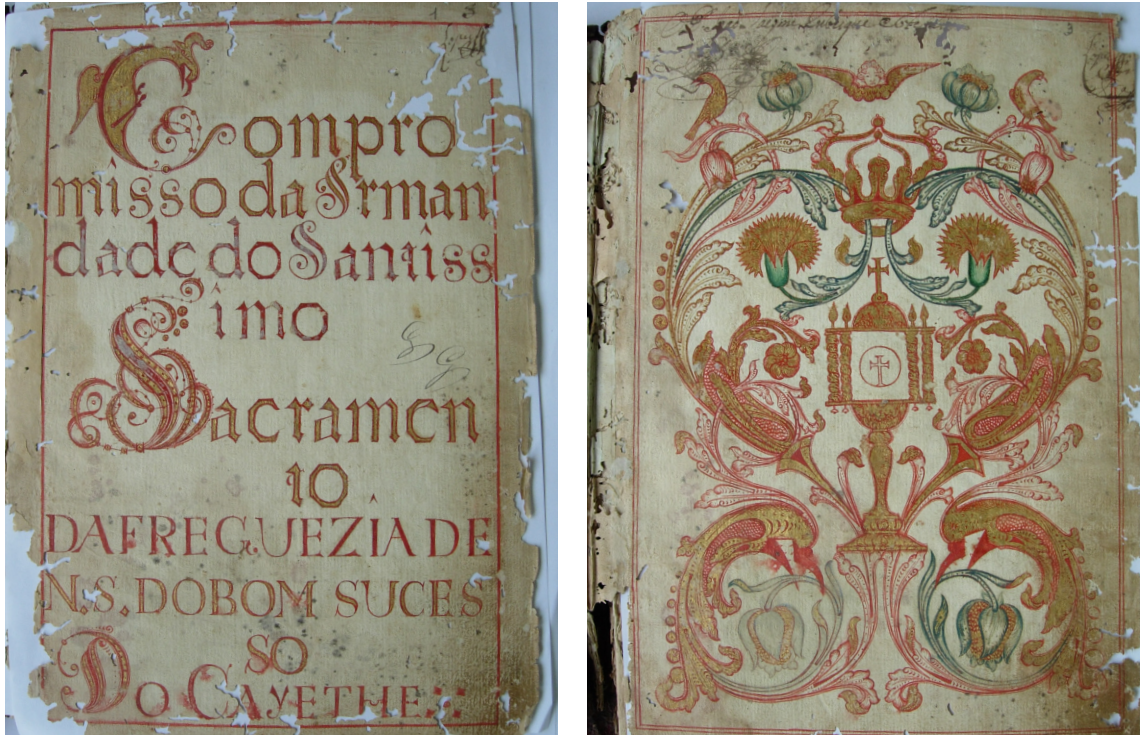 Compro
misso da Irman
dade do Santiss
imo
Sacramen
to
DAFREGUEZIA DE
N.S. DOBOM SUCES
SO
DO CAYETHE
3